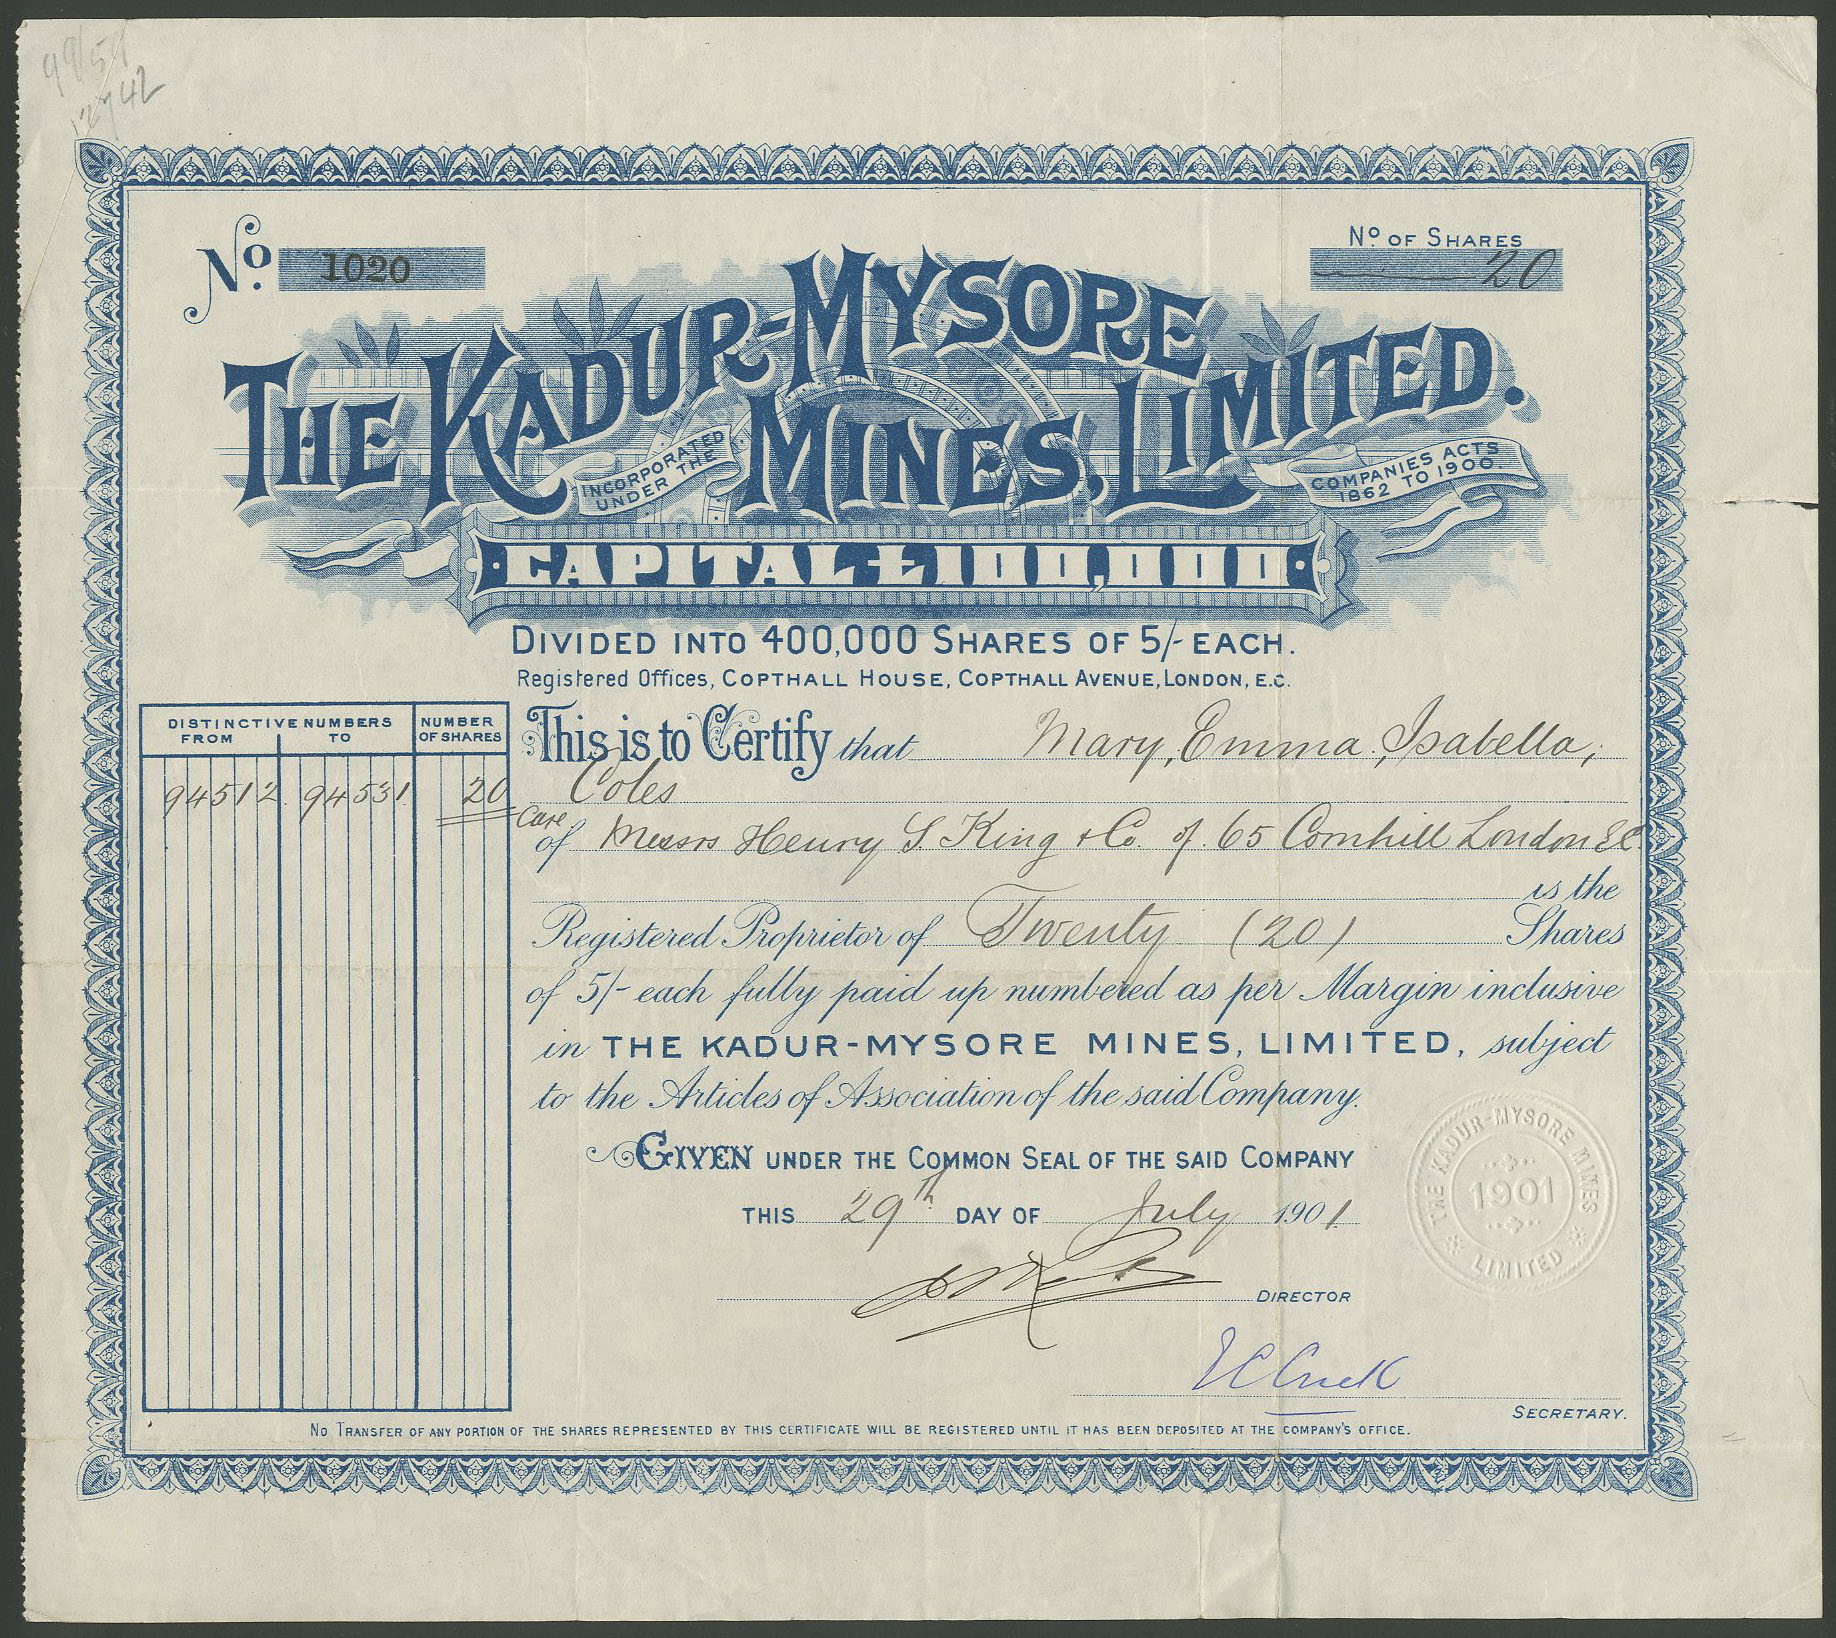 99/51
12742
No. 1020
No OF SHARES
20
THE KADUR-MYSORE
MINES, LIMITED.
INCORPORATED
UNDER THE
COMPANIES ACTS
1862 TO 1900.
CAPITAL £100,000.
DIVIDED INTO 400,000 SHARES OF 5/- EACH.
Registered Offices, COPTHALL HOUSE, COPTHALL AVENUE, LONDON, E.C.
DISTINCTIVE NUMBERS
FROM TO
NUMBER
OF SHARES
94512 94531 20
This is to Certify that Mary, Emma, Isabella,
Coles
Care
of Messrs Henry S. King & Co. of 65 Cornhill London E.C.
is the
Registered Proprietor of Twenty (20) Shares
of 5/- each fully paid up numbered as per Margin inclusive
in THE KADUR-MYSORE MINES, LIMITED, subject
to the Articles of Association of the said Company.
GIVEN UNDER THE COMMON SEAL OF THE SAID COMPANY
THIS 29th DAY OF July 1901
THE KADUR-MYSORE MINES
1901
LIMITED
DIRECTOR
SECRETARY.
NO TRANSFER OF ANY PORTION OF THE SHARES REPRESENTED BY THIS CERTIFICATE WILL BE REGISTERED UNTIL IT HAS BEEN DEPOSITED AT THE COMPANY'S OFFICE.